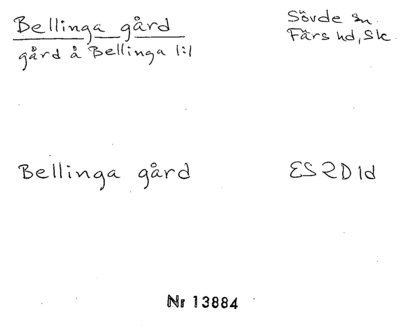 Bellinga gård
gård å Bellinga 1:1
Sövde sn
Färs hd, Sk.
Bellinga gård
ES 2D1d
Nr 13884